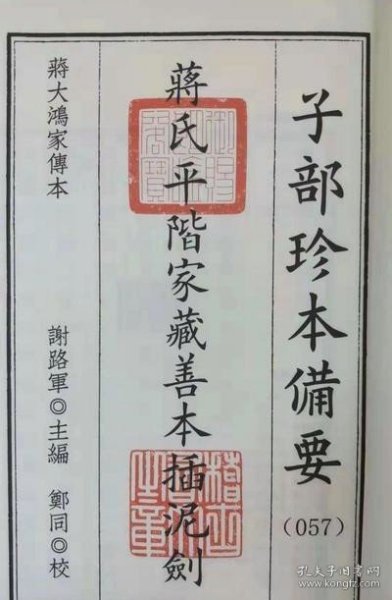 子部珍本備要
(057)
蔣氏平階家藏善本插泥劍
蔣大鴻家傳本
謝路軍◎主編 鄭同◎校
孔夫子旧书网
www.kongfz.com